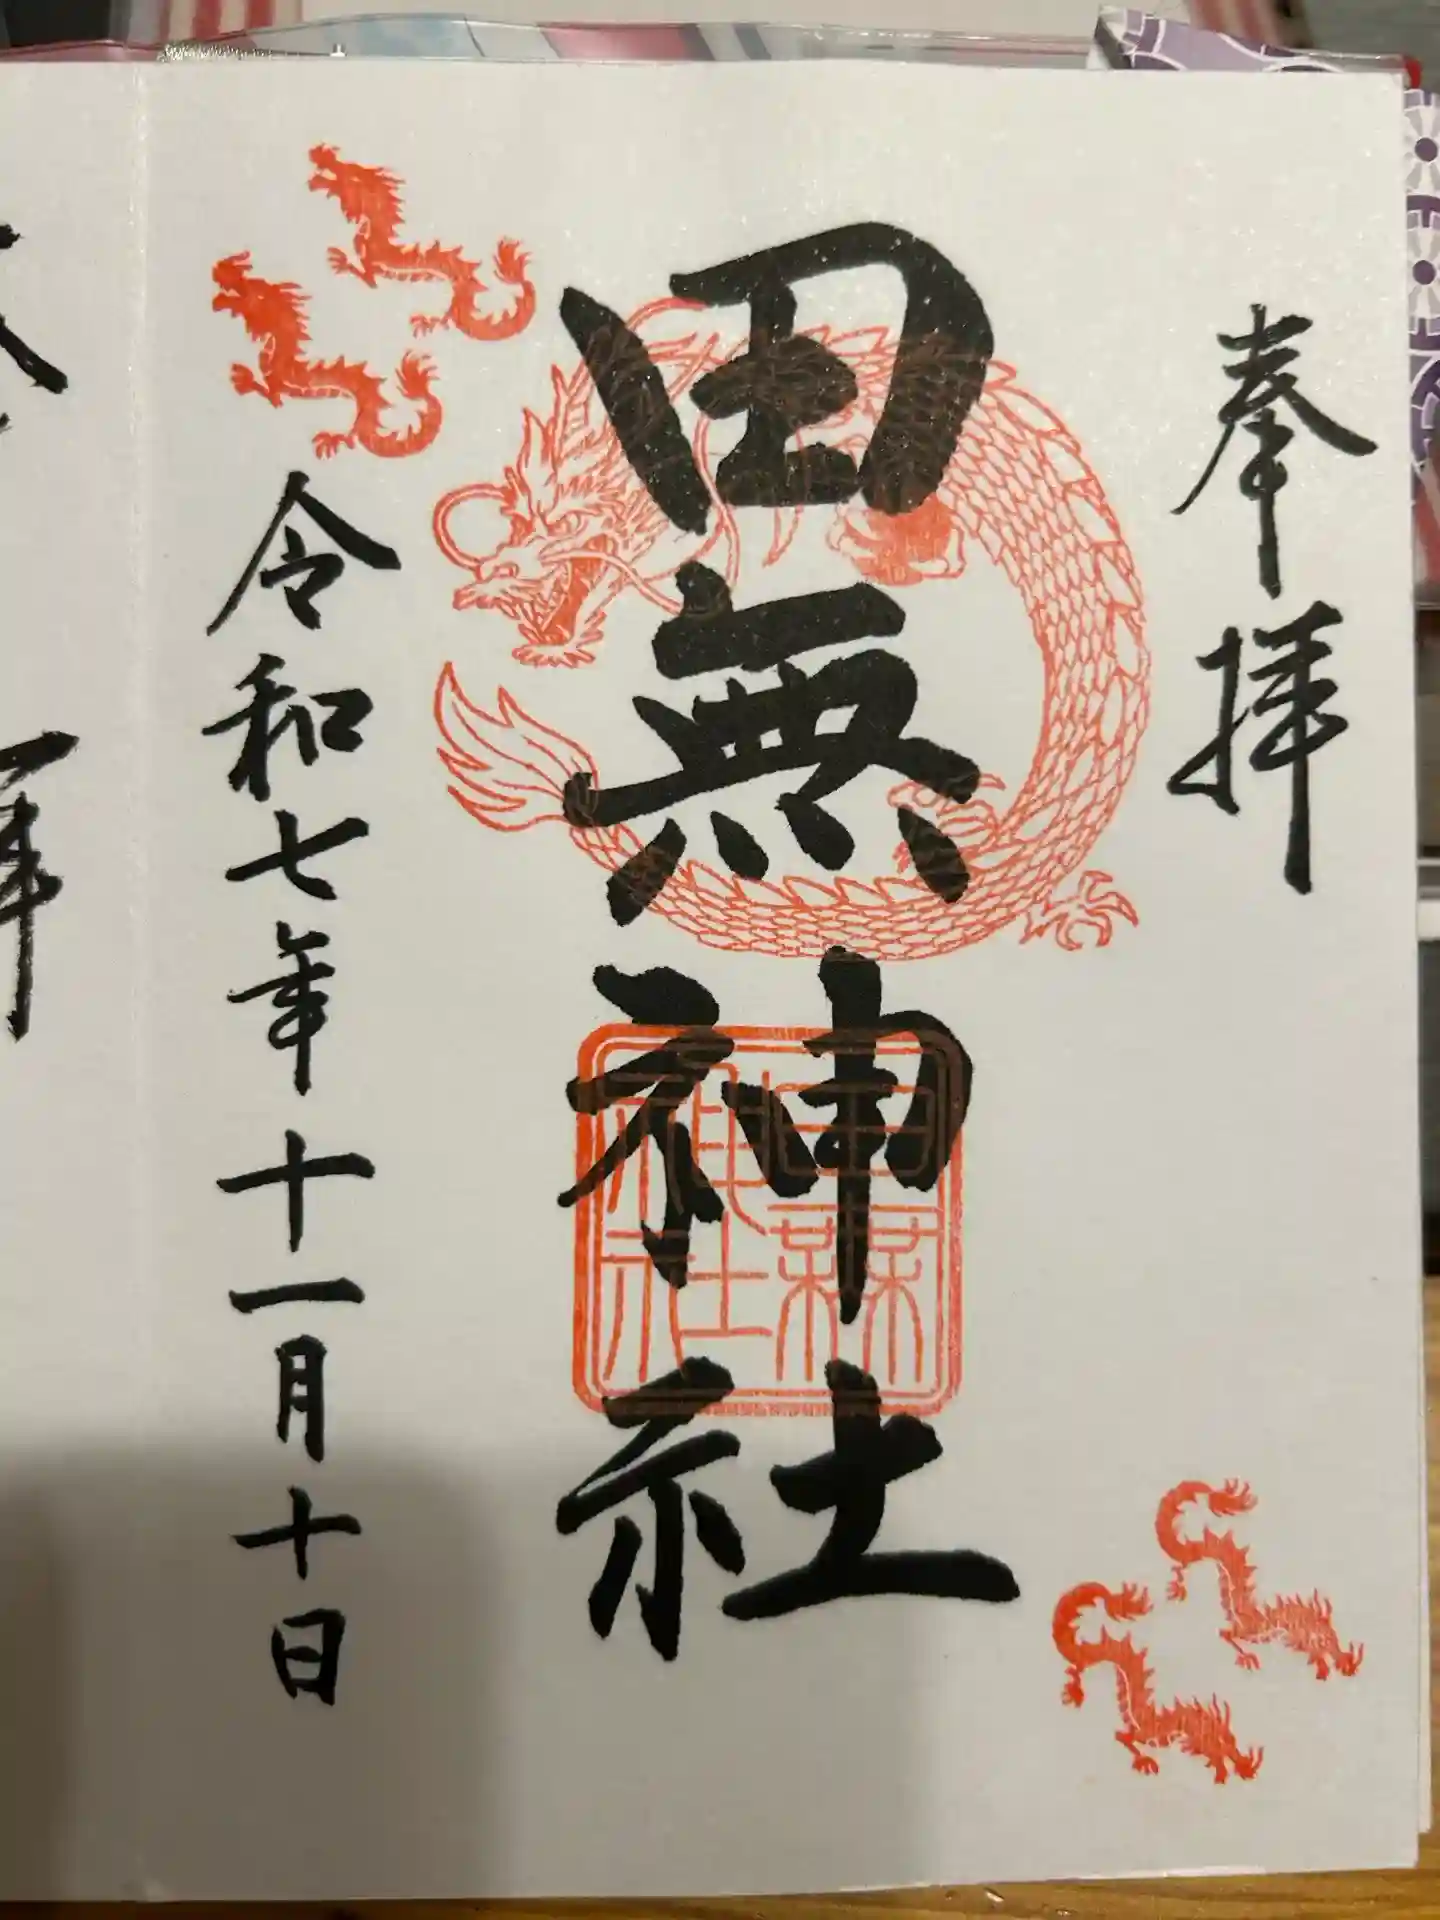 奉拝
田無神社
田無神社
令和七年十一月十日
拝